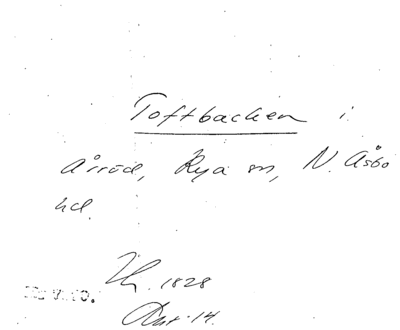 Toftbacken i
Årröd, Rya sn, N. Åsbo
hd.
1828
Akt 14.